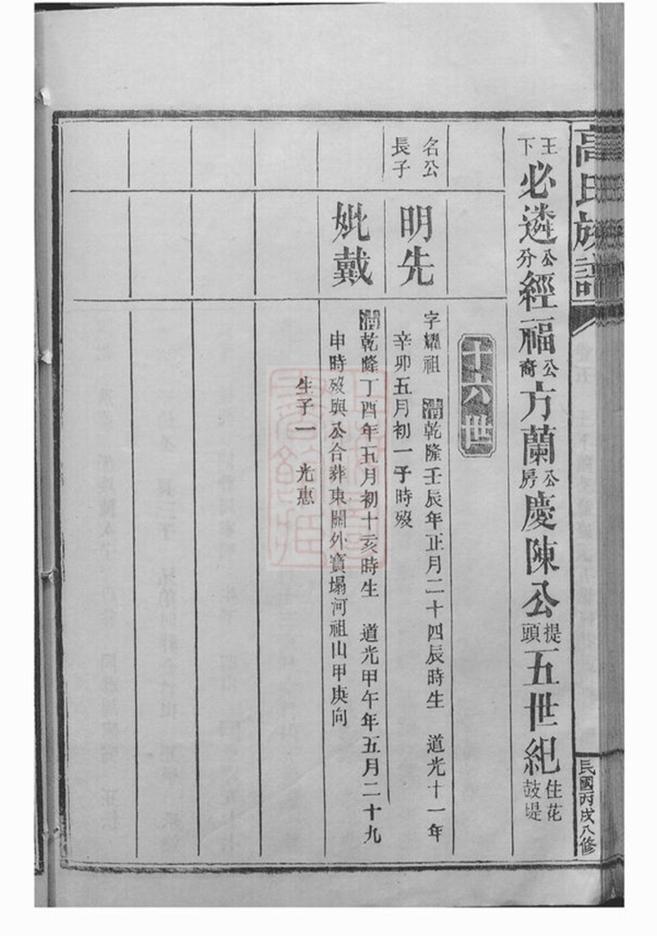 高氏族譜
民國丙戌八修
王下必遴公分經福公裔方蘭公房慶陳公提頭五世紀住花鼓堤
十六世
名公長子
明先
字耀祖 清乾隆壬辰年正月二十四辰時生 道光十一年
辛卯五月初一子時歿
妣戴
清乾隆丁酉年五月初十亥時生 道光甲午年五月二十九
申時歿與公合葬東關外寶塌河祖山甲庚向
生子一 光惠